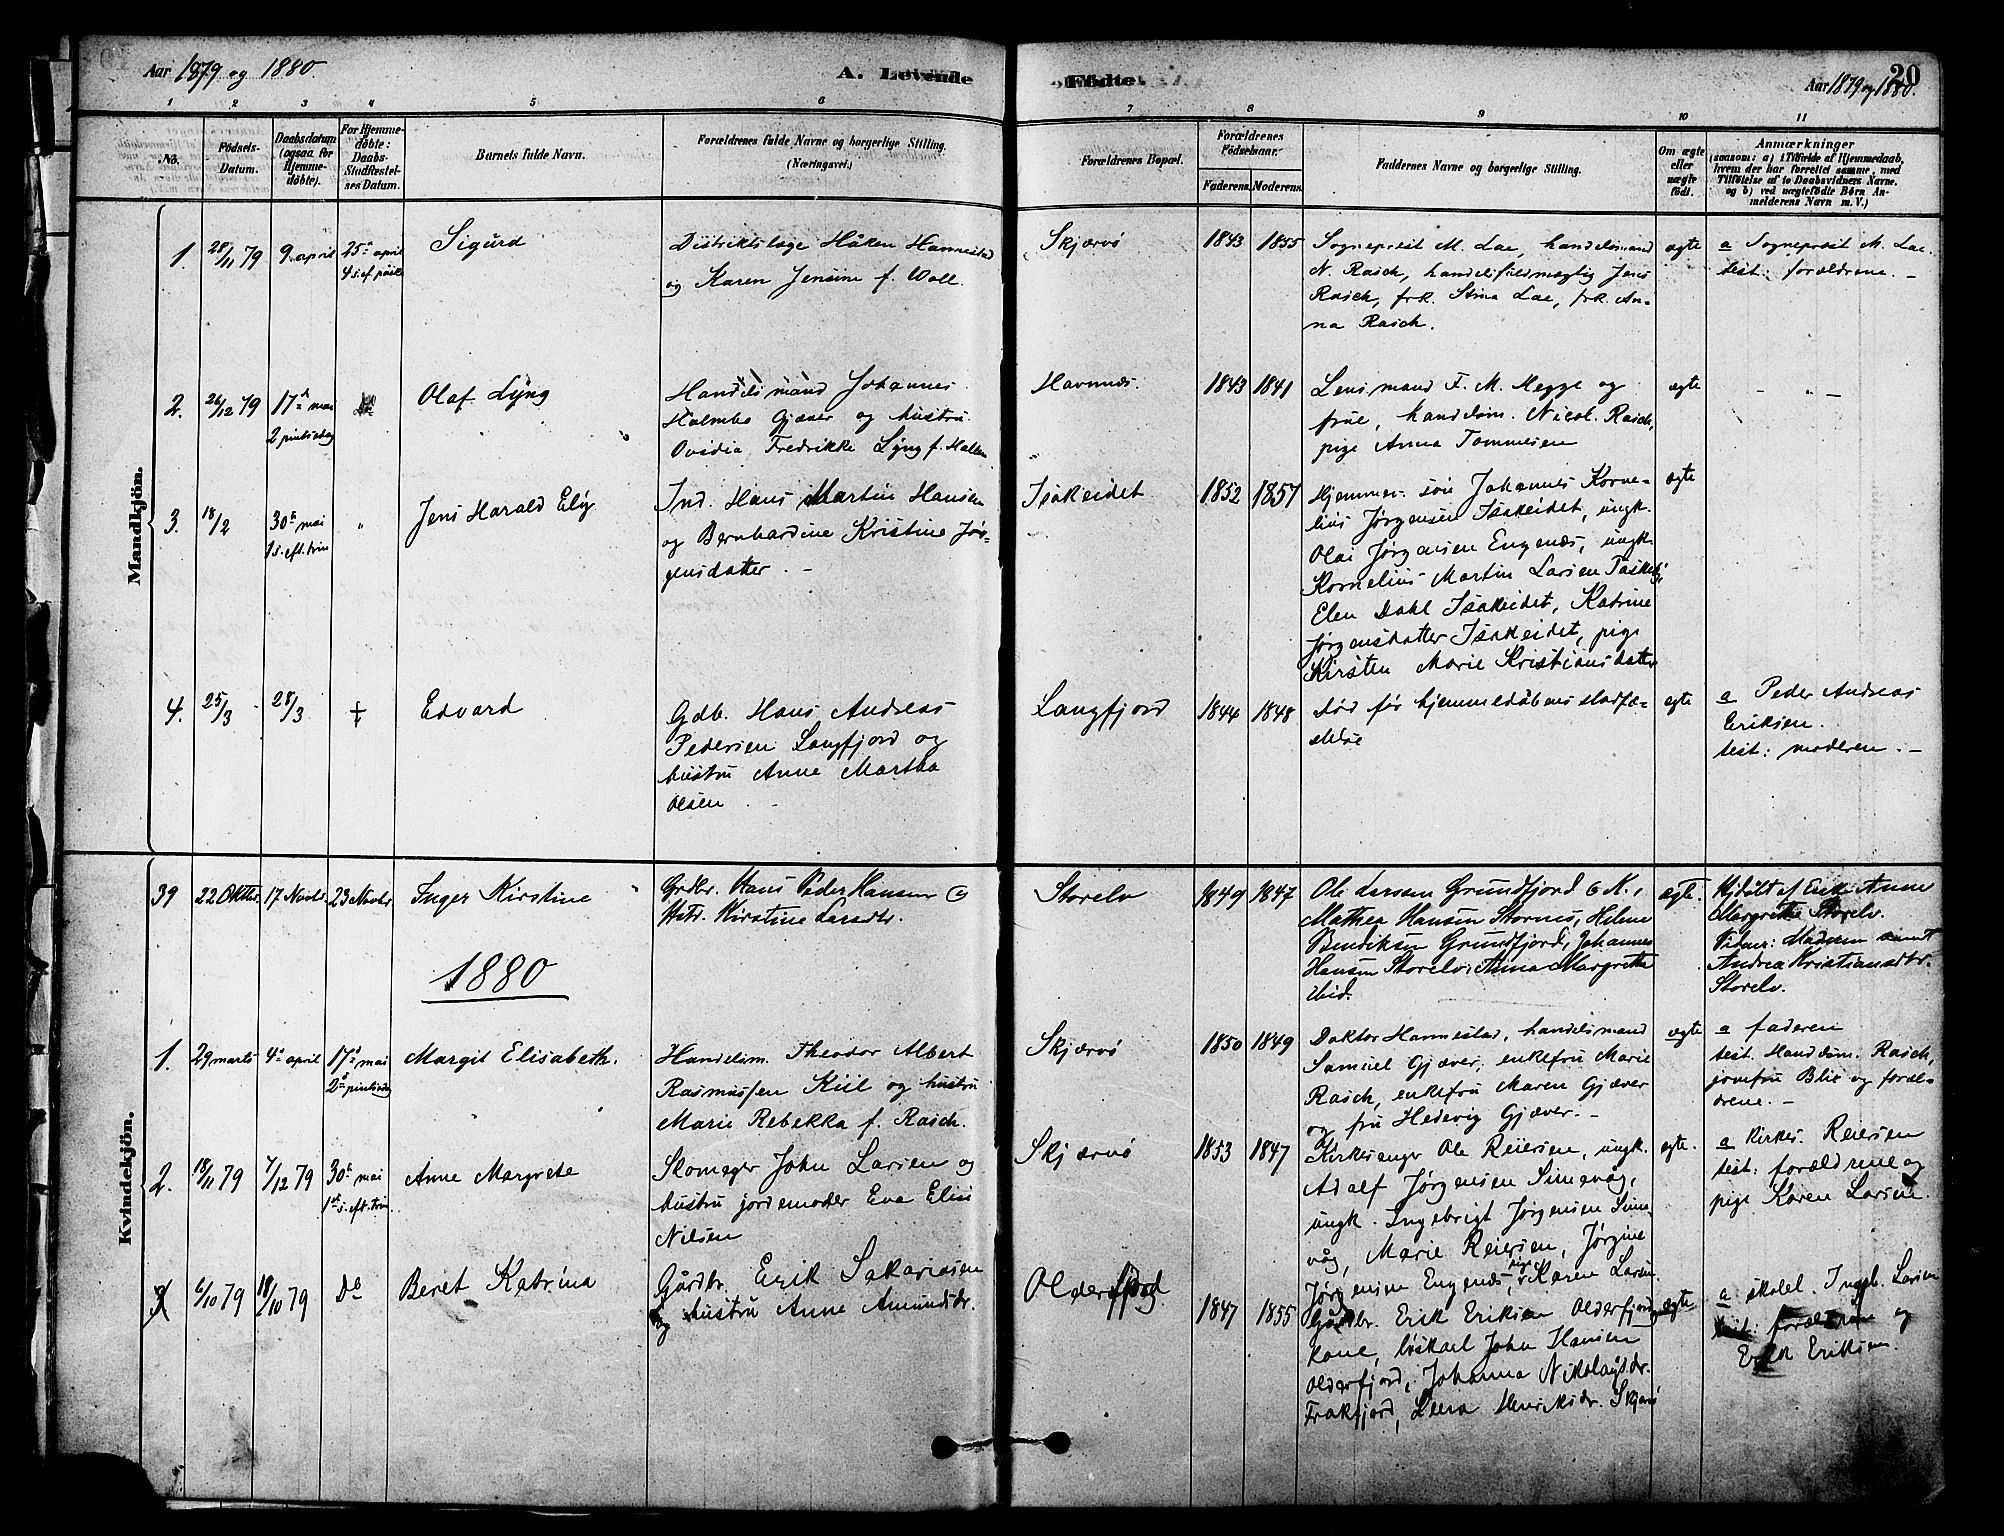 Aar 1879 og 1880.
A. Levende
Fødte.
20
Aar 1879 og 1880.
1 2 3 4 5 6 7 8 9 10 11
No.
Fødsels-
Datum.
Daabsdatum
(ogsaa for
Hjemme-
døbte).
For Hjemme-
døbte:
Daabs-
Stadfæstel-
ses Datum.
Barnets fulde Navn.
Forældrenes fulde Navne og borgerlige Stilling.
(Næringsvei.)
Forældrenes Bopæl.
Forældrenes
Fødselsaar.
Faderens. Moderens.
Faddernes Navne og borgerlige Stilling.
Om ægte
eller
uægte
født.
Anmærkninger
(saasom: a) i Tilfælde af Hjemmedaab,
hvem der har forrettet samme, med
Tilføielse af to Daabsvidners Navne.
og b) ved uægtefødte Børn An-
melderens Navn m. V.)
Mandkjön.
1.
28/11 79
9 april
25de april
4 s. ef. påske
Sigurd
Distriktslæge Håken Hannestad
og Karen Jensine f. Woll.
Skjærvö
1843
1855
Sogneprest M. Lae, handelsmand
N. Rasch, handelsfuldmægtig Jens
Rasch, frk. Stina Lae, frk. An-
na Rasch.
ægte
a Sogneprest M. Lae.
test: forældrene. -
2.
26/12 79
17de mai
2 pintsedag
Olaf Lyng
Handelsmand Johannes
Holmbo Gjæver og hustru
Ovidia Fredrikke Lyng f. Hallen
Havnnæs.
1843
1841
Lensmand F. M. Hegge og
frue, handelsm. Nicol. Rasch,
pige Anna Tommesen
ægte
- " -
3.
18/2
30te mai
1 s. eft. trin
"
Jens Harald Eliǵ
Ind. Hans Martin Hansen
og Bernhardine Kristine Jör-
gensdatter. -
Isakeidet
1852
1857
Hjemmev. søn Johannes Korne-
lius Jørgensen Isakeidet, ungk.
Olai Jørgensen Engenæs, ungk.
Kornelius Martin Larsen Taskeby,
Elen Dahl Isakeidet, Katrine
Jørgensdatter Isakeidet, pige
Kirsten Marie Kristiansdatter
ægte
4.
25/3
28/3
†
Edvard
Gdb. Hans Andreas
Pedersen Langfjord og
hustru Anne Martha
Olsen
Langfjord
1844
1848
död før hjemmedåbens stadfæ-
stelse
ægte
a Peder Andreas
Eriksen.
test: moderen. -
Kvindekjön.
39
22 Oktbr.
17 Novbr.
23 Novbr.
Inger Kirstine
Grdbr. Hans Peder Hansen &
Hstr. Kirstine Larsdtr.
Storelv
1849
1847
Ole Larssen Grundfjord & K.,
Mathea Hansen Stornes, Helene
Bendiksen Grundfjord, Johannes
Hansen Storelv, Anna Margrethe
ibid.
ægte.
Hjdöbt af Erik Anne
Margrethe Storelv.
Vidner: Moderen samt
Andrea Kristiansdtr.
Storelv.
1880
1.
29 marts
4de april
17de mai
2den pintsedag
Margit Elisabeth.
Handelsm. Theodor Albert
Rasmussen Kiil og hustru
Marie Rebekka f. Rasch.
Skjærvö
1850
1849
Doktor Hannestad, handelsmand
Samuel Gjæver, enkefru Marie
Rasch, enkefru Maren Gjæver
og fru Hedevig Gjæver. -
ægte
a faderen
test. Handelsm. Rasch,
jomfru Blix og foræl-
drene. -
2.
18/11 79
7/12 79
30te mai
1ste s. eft. trin.
Anne Margrete
Skomager John Larsen og
hustru jordemoder Eva Elisi
Nilsen
Skjærvö
1853
1847
Kirkesanger Ole Reiersen, ungk.
Adolf Jørgensen Simevåg,
ungk. Ingebrigt Jørgensen Sime-
våg, Marie Reiersen, Jørgine
Jørgensine Engenæs, pige Karen Larsen.
ægte.
a Kirkes. Reiersen
test: forældrene og
pige Karen Larsen.
3
6/10 79
18/10 79
Do
Beret Katrina
Gårdbr. Erik Sakariasen
og hustru Anne Amundsdr.
Olderfjord
1847
1855
Gårdbr. Erik Eriksen Olderfjord
kone, løskarl John Hansen
Olderfjord, Johanna Nikolaysdr.
Frakfjord, Lena Henriksdr. Skjærvö
ægte
a skolel. Ingeb. Larsen
test: forældrene og
Erik Eriksen.